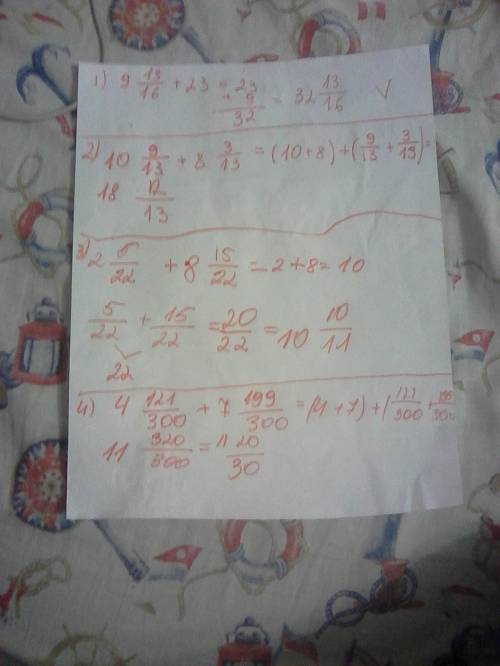 1) 9 13/16 + 23 = 23 + 9 / 32 = 32 13/16 V
2) 10 9/13 + 8 3/13 = (10+8)+(9/13 + 3/13) =
18 12/13
3) 2 5/22 + 8 15/22 = 2+8= 10
5/22 + 15/22 = 20/22 = 10 10/11
22
4) 4 121/300 + 7 199/300 = (4+7)+(121/300 + 199/300
11 320/300 = 11 20/30